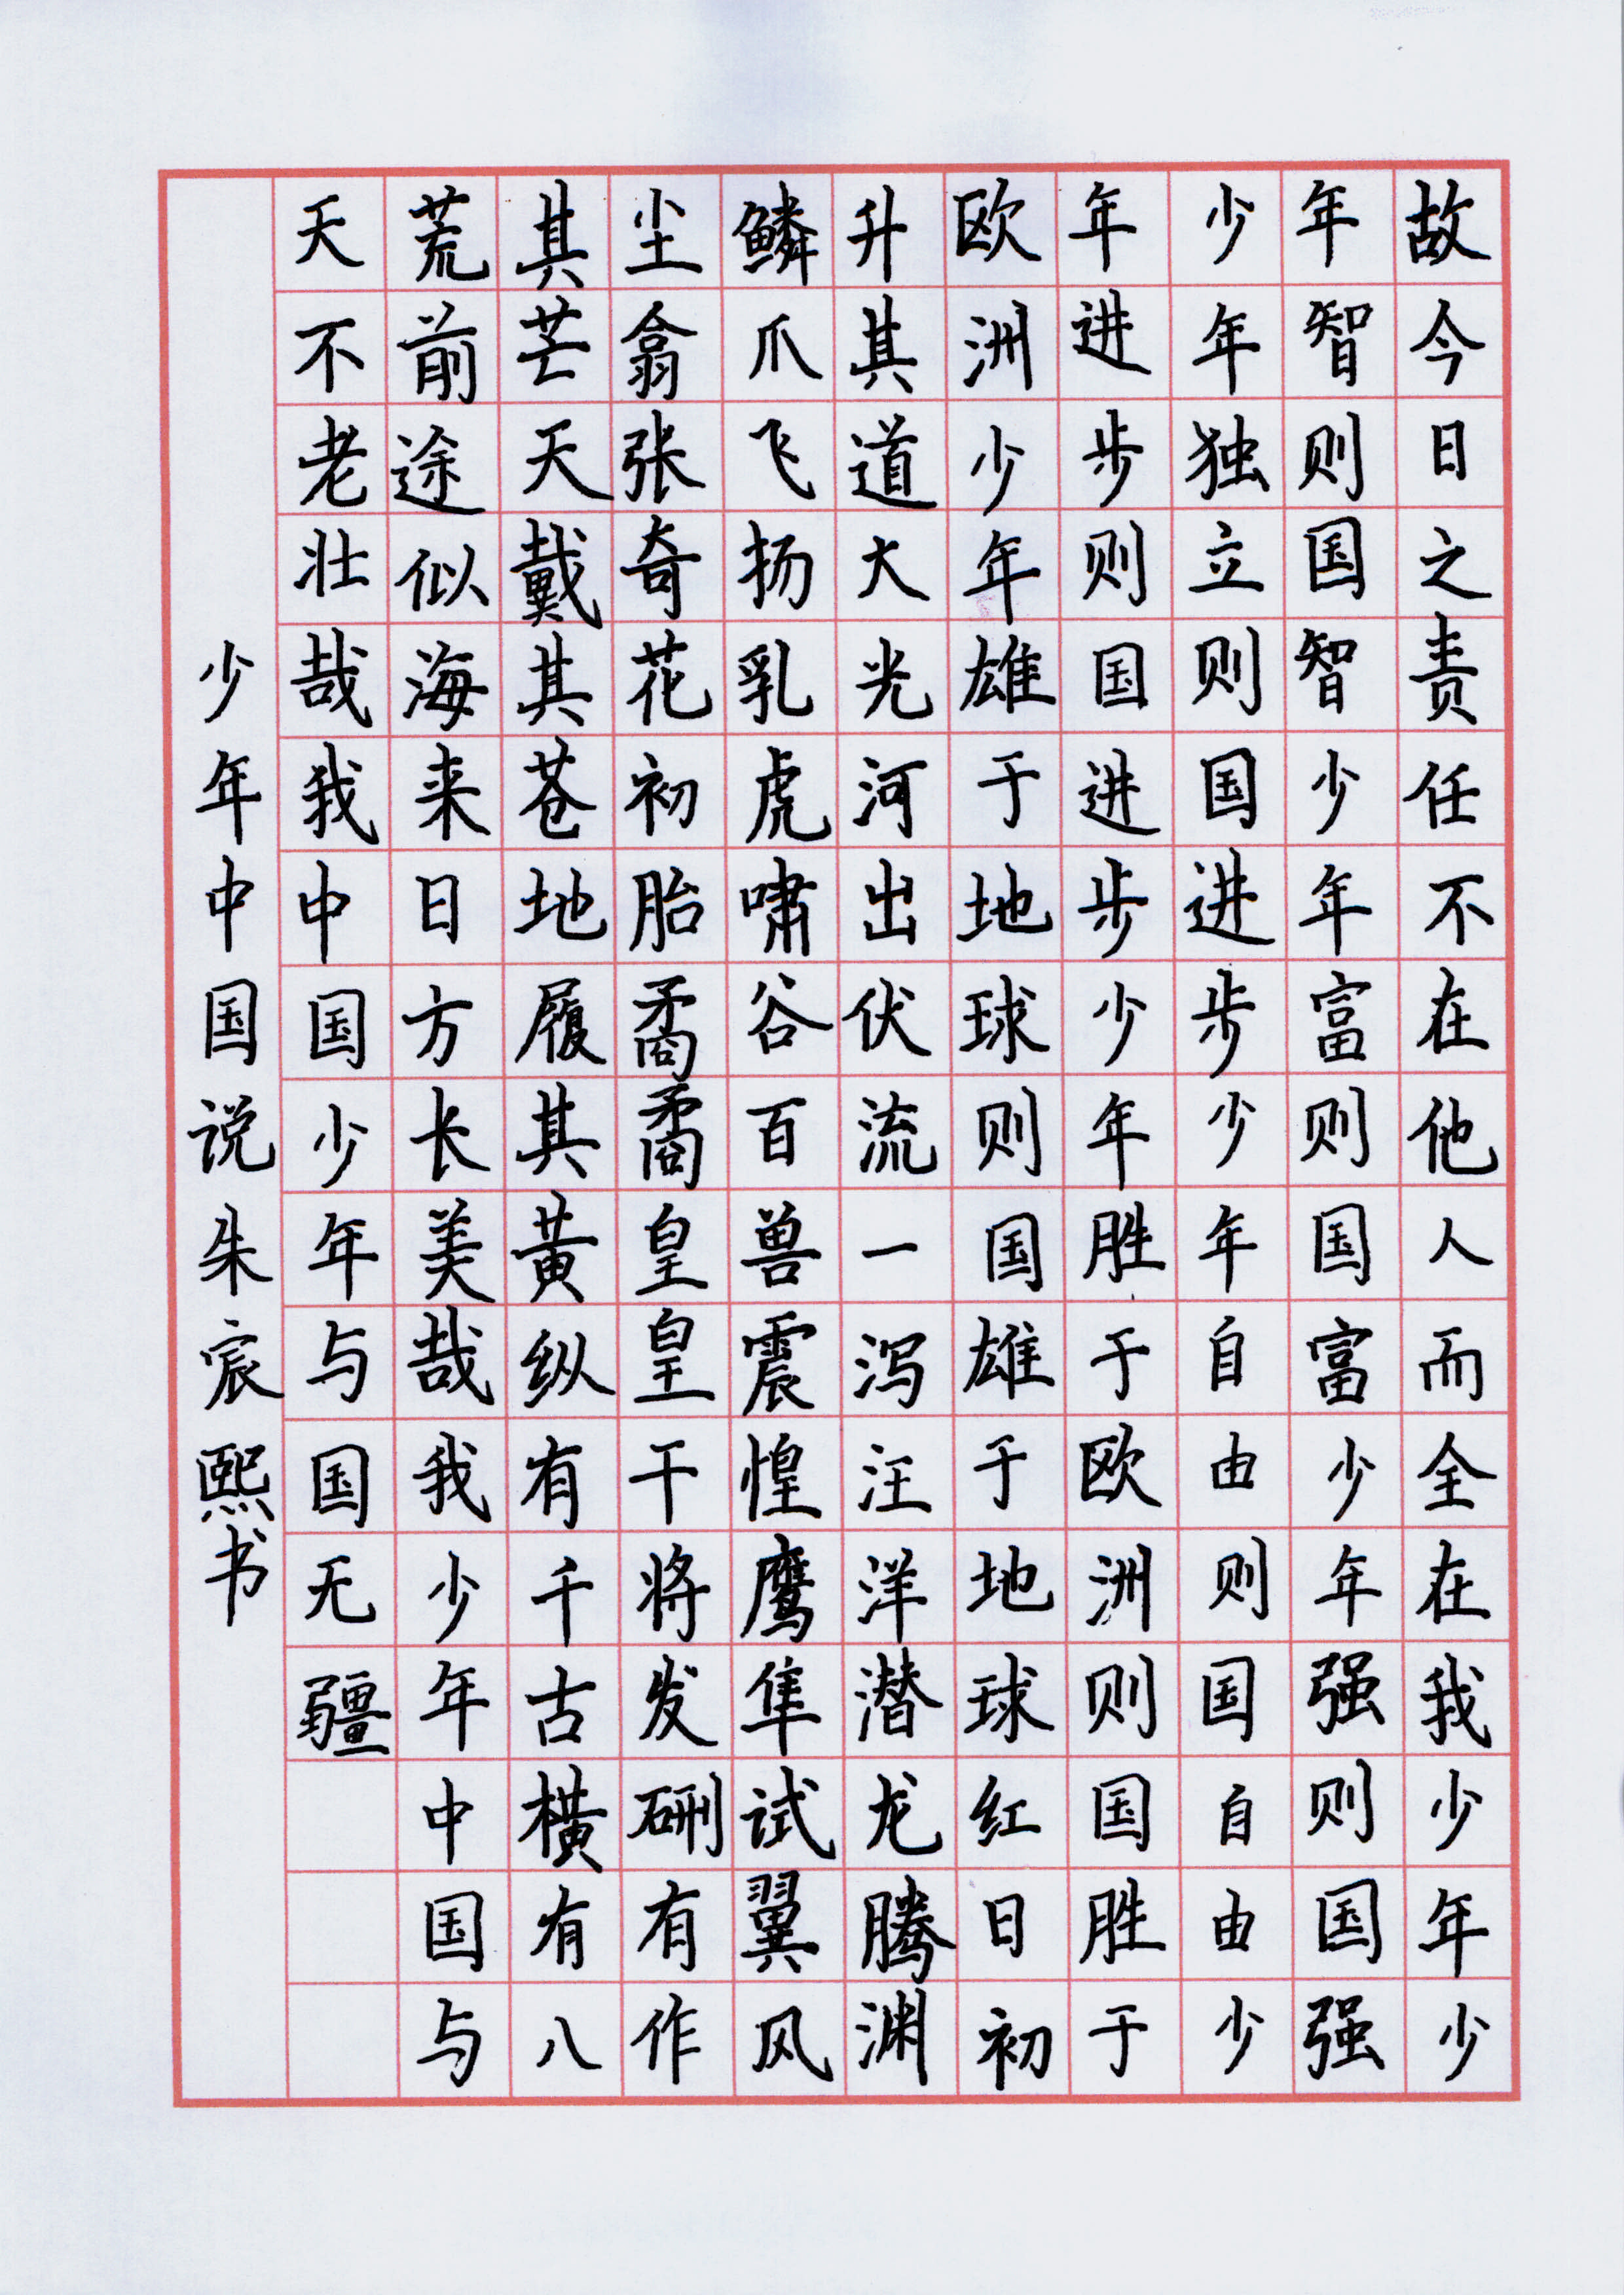 故今日之责任不在他人而全在我少年少
年智则国智少年富则国富少年强则国强
少年独立则国进步少年自由则国自由少
年进步则国进步少年胜于欧洲则国胜于
欧洲少年雄于地球则国雄于地球红日初
升其道大光河出伏流一泻汪洋潜龙腾渊
鳞爪飞扬乳虎啸谷百兽震惶鹰隼试翼风
尘翕张奇花初胎矞矞皇皇干将发硎有作
其芒天戴其苍地履其黄纵有千古横有八
荒前途似海来日方长美哉我少年中国与
天不老壮哉我中国少年与国无疆
少年中国说朱宸熙书